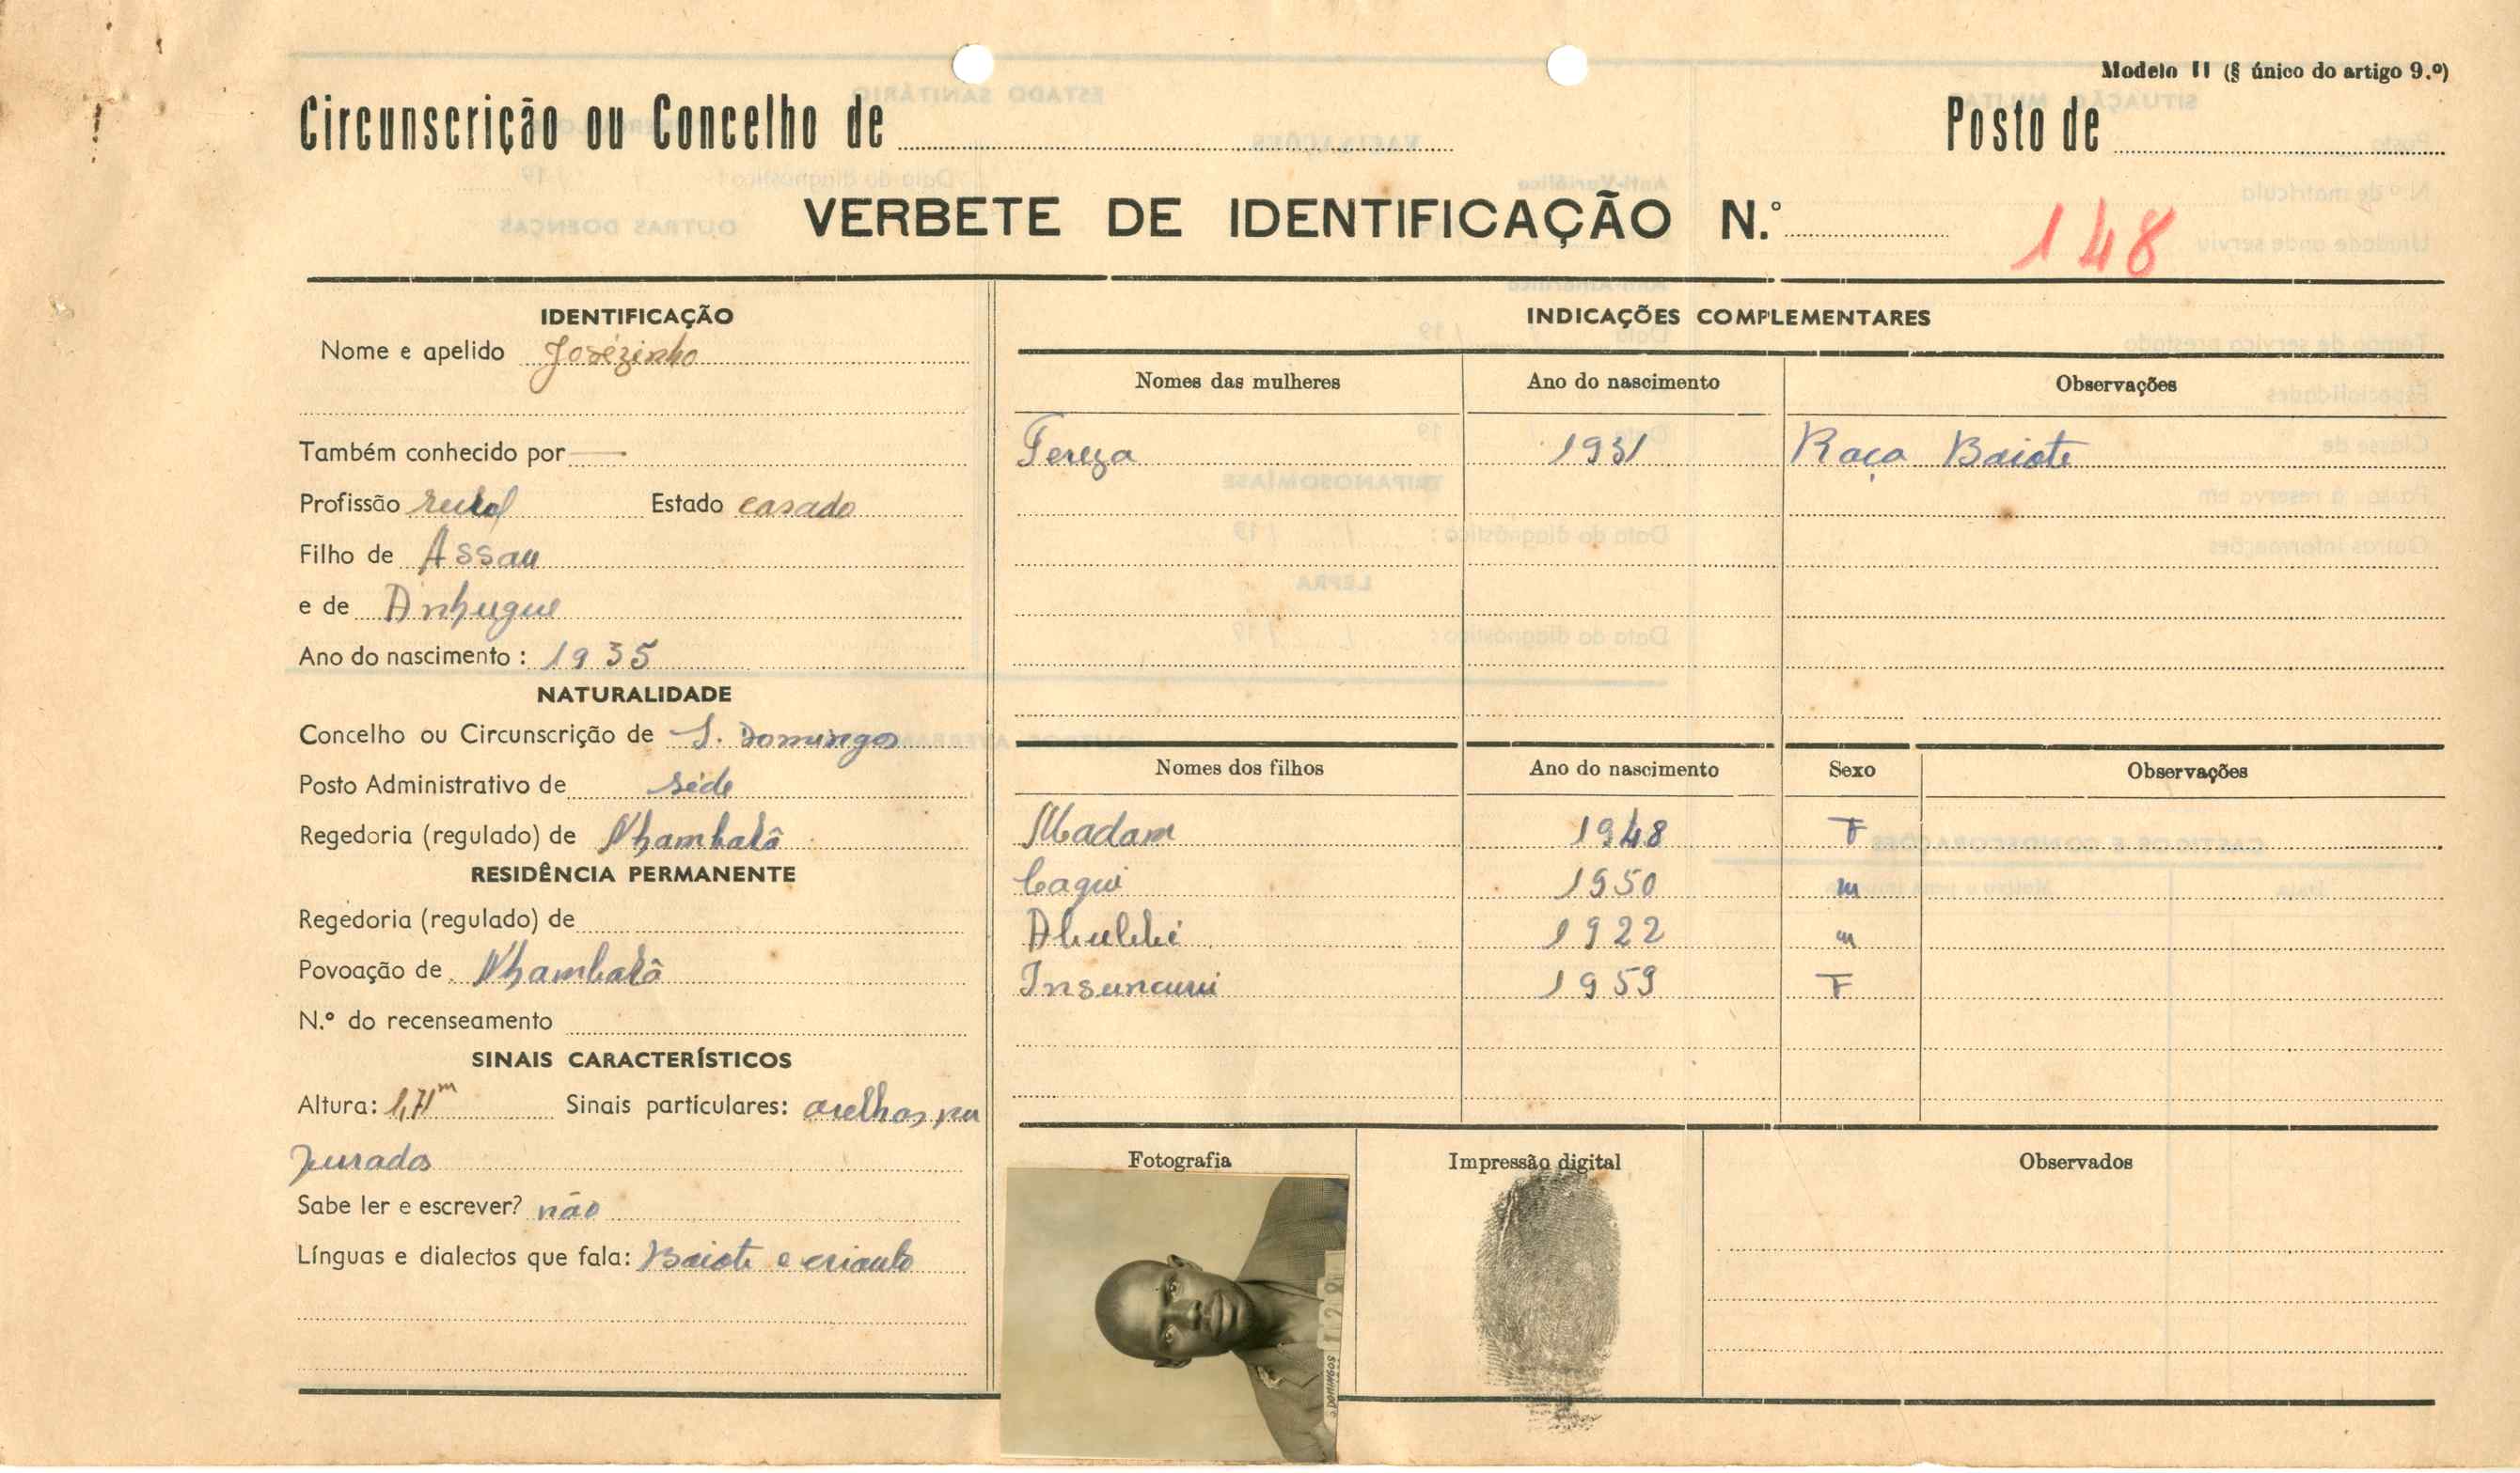 Modelo II (§ único do artigo 9.º)
Circunscrição ou Concelho de
Posto de
VERBETE DE IDENTIFICAÇÃO N.º 148
IDENTIFICAÇÃO
Nome e apelido Josézinho
Também conhecido por —
Profissão rural Estado casado
Filho de Assau
e de Anhugue
Ano do nascimento : 1935
NATURALIDADE
Concelho ou Circunscrição de S. Domingos
Posto Administrativo de séde
Regedoria (regulado) de Nhambalô
RESIDÊNCIA PERMANENTE
Regedoria (regulado) de
Povoação de Nhambalô
N.º do recenseamento
SINAIS CARACTERÍSTICOS
Altura: 1,71m Sinais particulares: orelhas, per
furados
Sabe ler e escrever? não
Línguas e dialectos que fala: Baiote e crioulo
INDICAÇÕES COMPLEMENTARES
Nomes das mulheres Ano do nascimento Observações
Tereza 1931 Raça Baiote
Nomes dos filhos Ano do nascimento Sexo Observações
Madam 1948 F
Cagui 1950 m
1922 m
Insuncuui 1959 F
Fotografia Impressão digital Observados
S. DOMINGOS